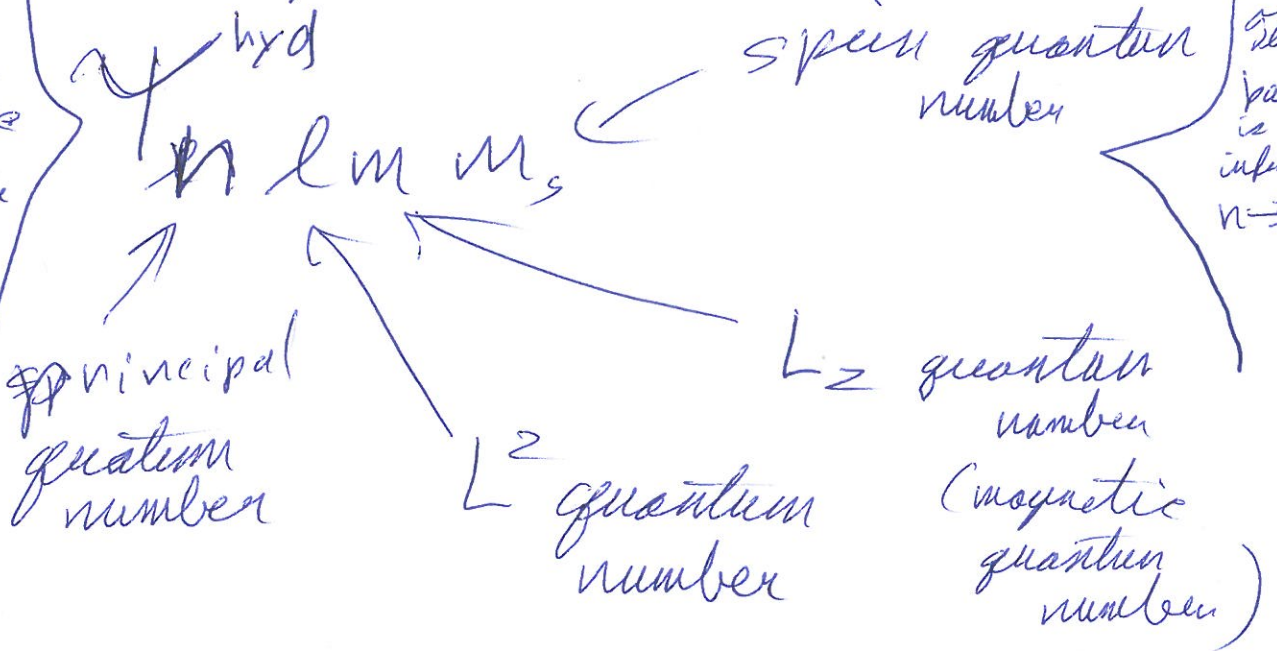 ψ hyd
n l m m_s
spin quantum
number
principal
quatum
number
L² quantum
number
L_z quantum
number
(magnetic
quantum
number)
is
n→